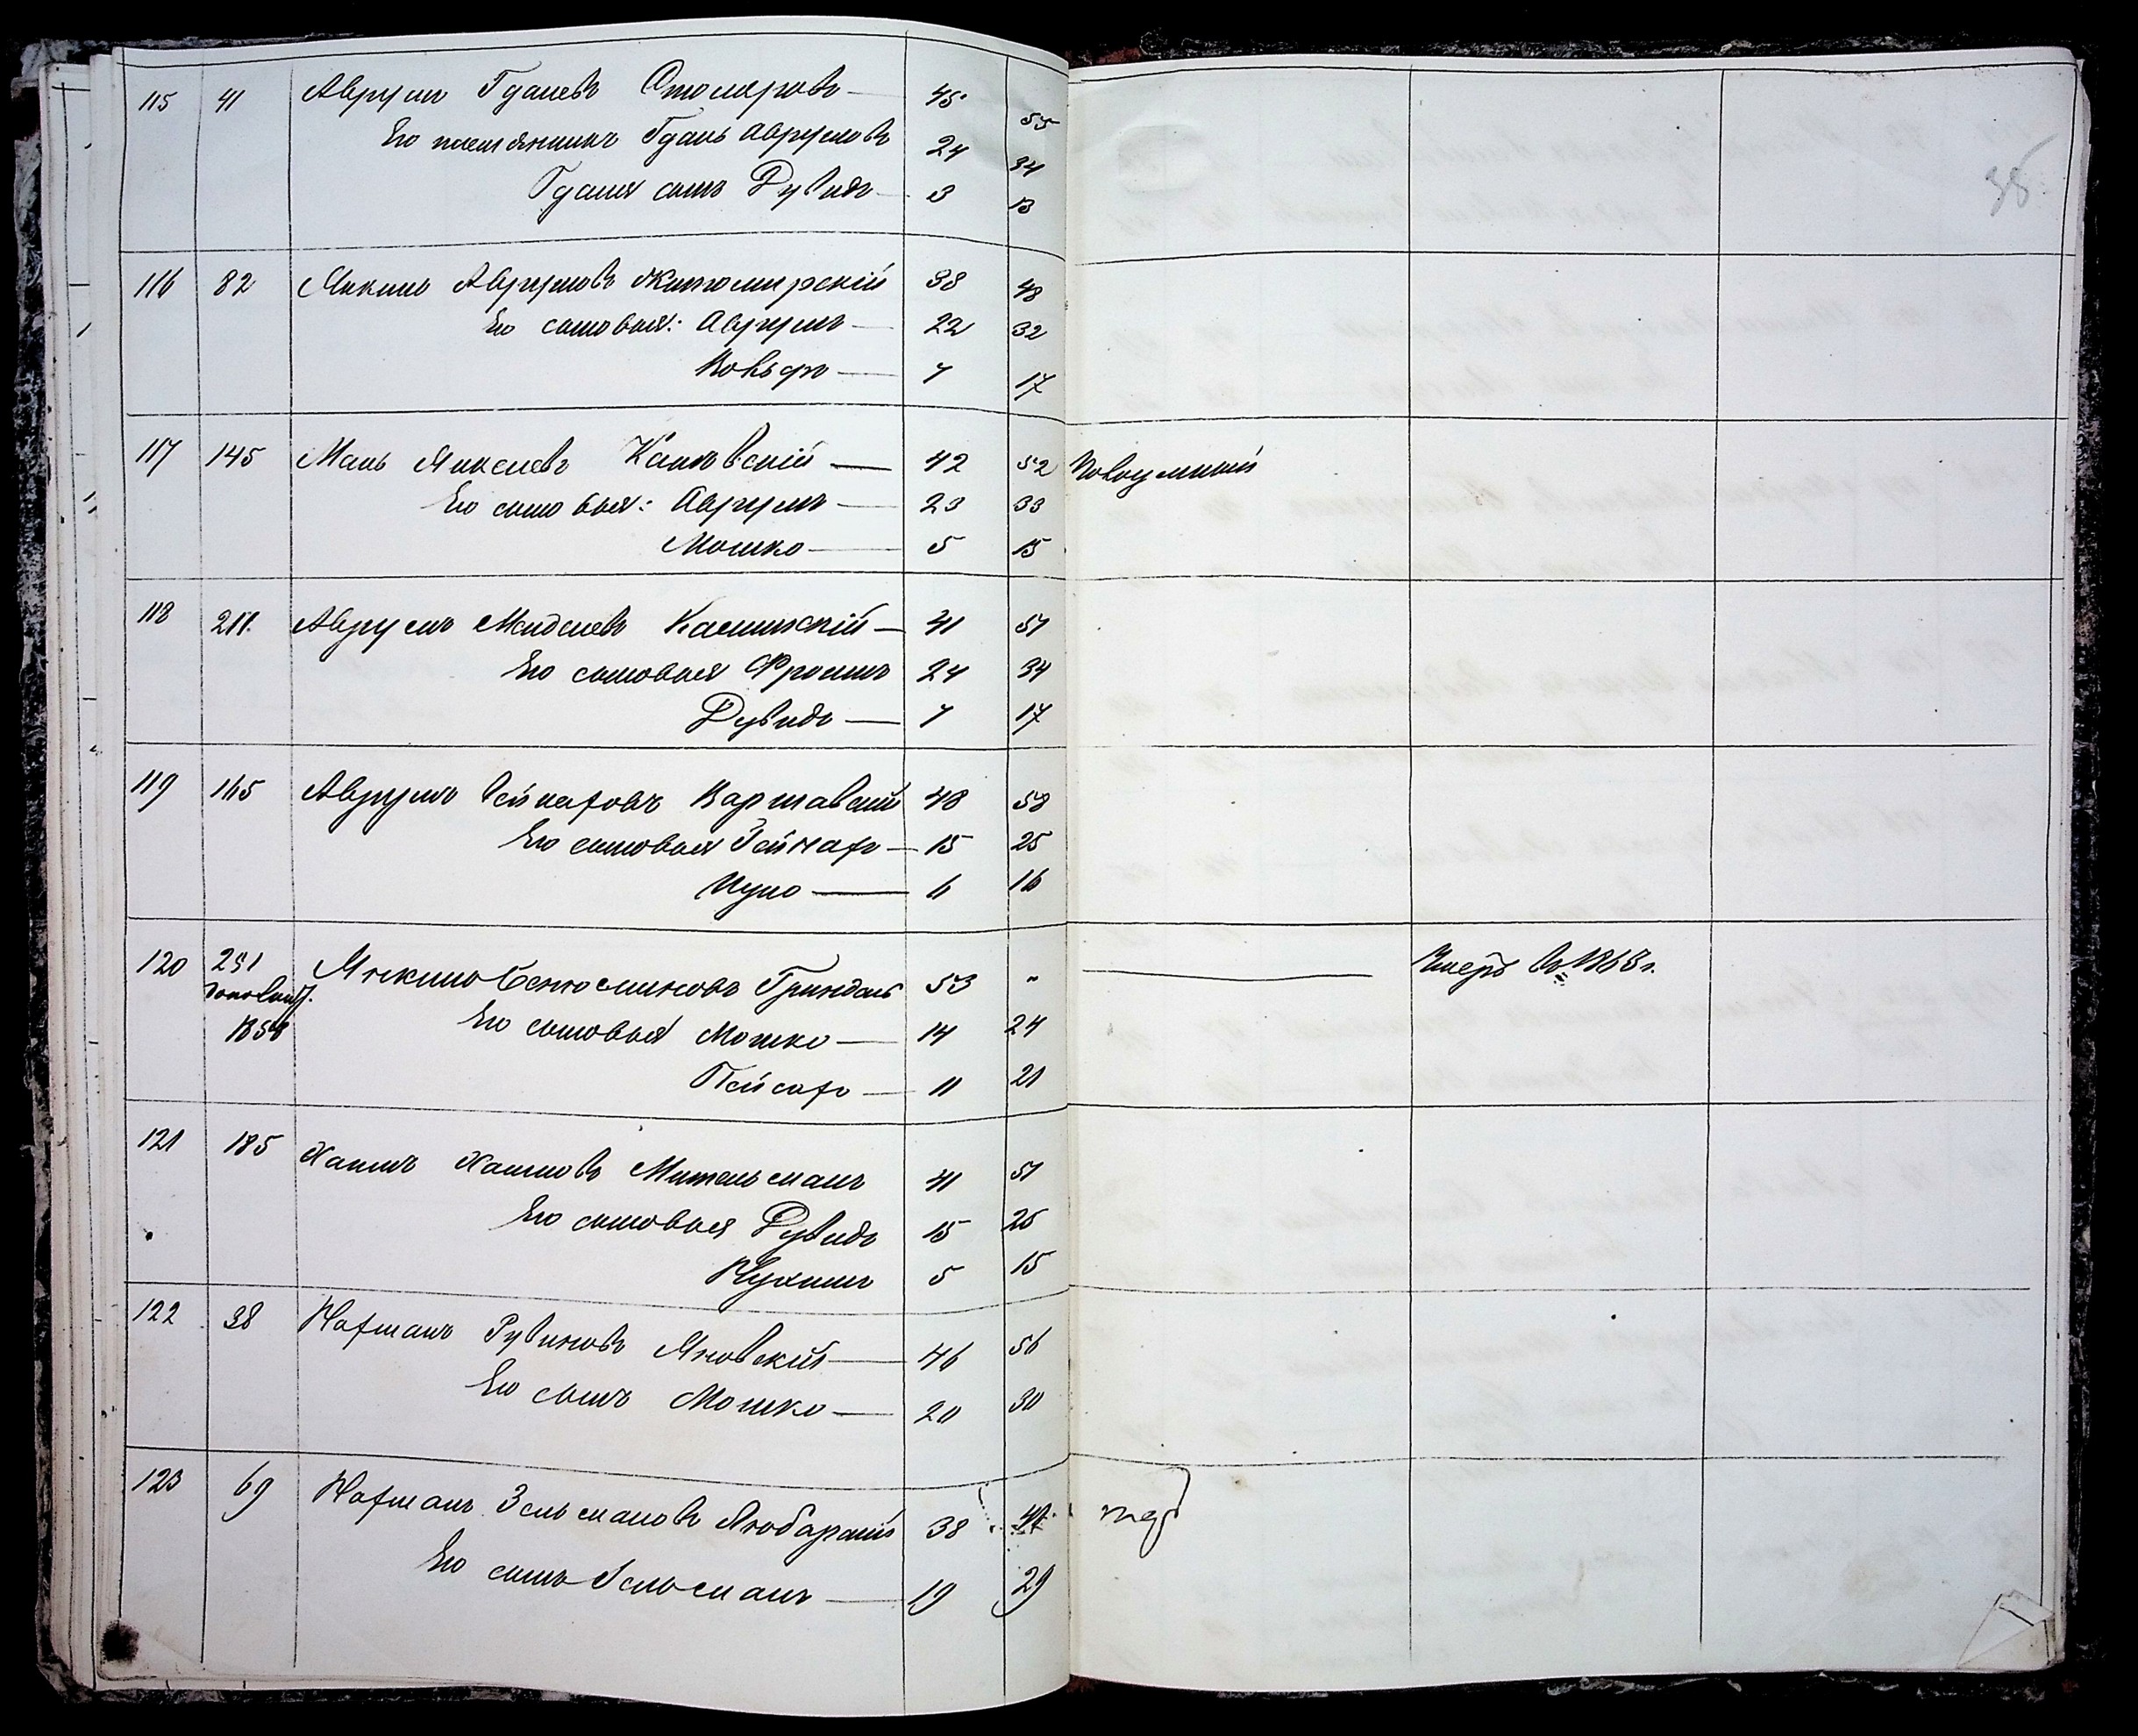 38
115 41 Аврумъ Гдалевъ Столяровъ — 45 55
Его племянникъ Гдаль Аврумовъ 24 34
Гдаля сынъ Дувидъ — 3 13
116 82 Янкель Аврумовъ Житомирскій 38 48
Его сыновья: Аврумъ — 22 32
Вольфъ — 7 17
117 145 Мань Янкелевъ Каневскій — 42 52
Его сыновья: Аврумъ — 23 33
Мошко — 5 15
118 211. Аврумъ Менделевъ Каминскій — 41 51
Его сыновья Фроимъ 24 34
Дувидъ — 7 17
119 165 Аврумъ Пейсаховъ Варшавскій 48 58
Его сыновья Пейсахъ — 15 25
Ицко — 6 16
120 251 Янкель Беньяминовъ Гриндель 53 " — Умеръ въ 1865 г.
1858 Его сыновья Мошко — 14 24
Пейсахъ — 11 21
121 185 Хаимъ Хаимовъ Мительманъ 41 51
Его сыновья Дувидъ 15 25
Нухимъ 5 15
122 38 Нахманъ Рувиновъ Яновскій — 46 56
Его сынъ Мошко — 20 30
123 69 Нахманъ Зельмановъ Любарскій 38
Его сынъ Зельманъ — 19 29